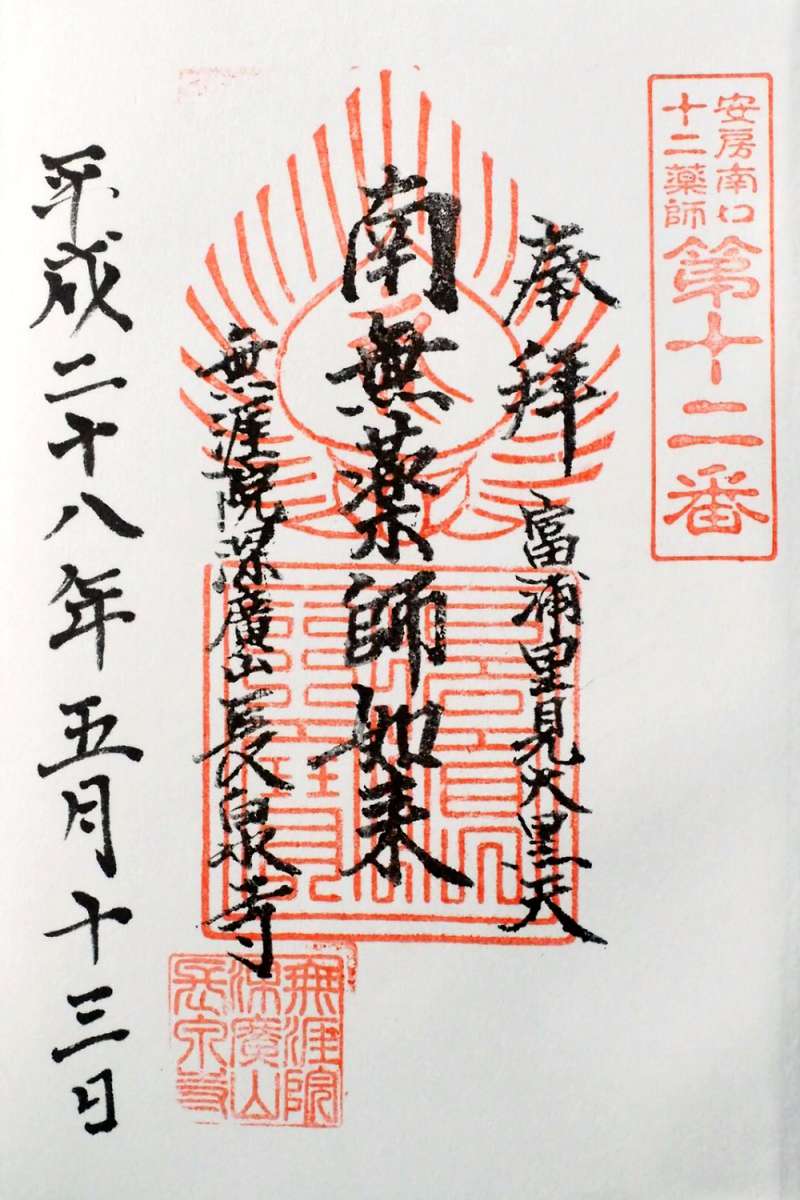 安房南口
十二薬師
第十二番
奉拝 富浦里見大黒天
南無薬師如来
無涯院深廣山長泉寺
平成二十八年五月十三日
無涯院
深廣山
長泉寺